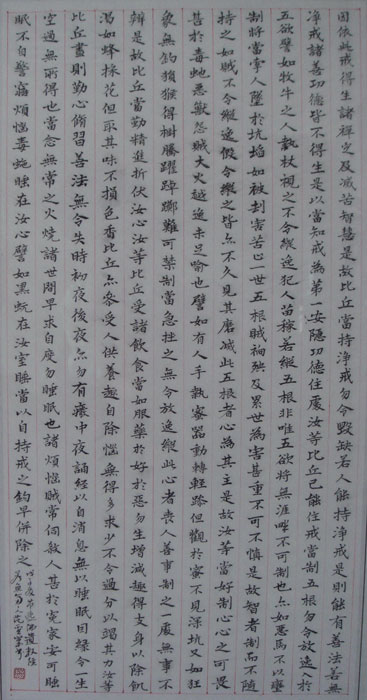 因依此戒得生諸禪定及滅苦智慧是故比丘當持淨戒勿令毀缺若人能持淨戒是則能有善法若無
淨戒諸善功德皆不得生是以當知戒為第一安隱功德住處汝等比丘已能住戒當制五根勿令放逸入於
五欲譬如牧牛之人執杖視之不令縱逸犯人苗稼若縱五根非唯五欲將無涯畔不可制也亦如惡馬不以轡
制將當牽人墜於坑埳如被劫害苦止一世五根賊禍殃及累世為害甚重不可不慎是故智者制而不隨
持之如賊不令縱逸假令縱之皆亦不久見其磨滅此五根者心為其主是故汝等當好制心心之可畏
甚於毒蛇惡獸怨賊大火越逸未足喻也譬如有人手執蜜器動轉輕躁但觀於蜜不見深坑又如狂
象無鉤猿猴得樹騰躍踔躑難可禁制當急挫之無令放逸縱此心者喪人善事制之一處無事不
辦是故比丘當勤精進折伏汝心汝等比丘受諸飲食當如服藥於好於惡勿生增減趣得支身以除飢
渴如蜂採花但取其味不損色香比丘亦爾受人供養趣自除惱無得多求
比丘晝則勤心修習善法無令失時初夜後夜亦勿有廢中夜誦經以自消息無以睡眠因緣令一生
空過無所得也當念無常之火燒諸世間早求自度勿睡眠也諸煩惱賊常伺殺人甚於冤家安可睡
眠不自警寤煩惱毒蛇睡在汝心譬如黑蚖在汝室睡當以自持戒之鉤早併除之